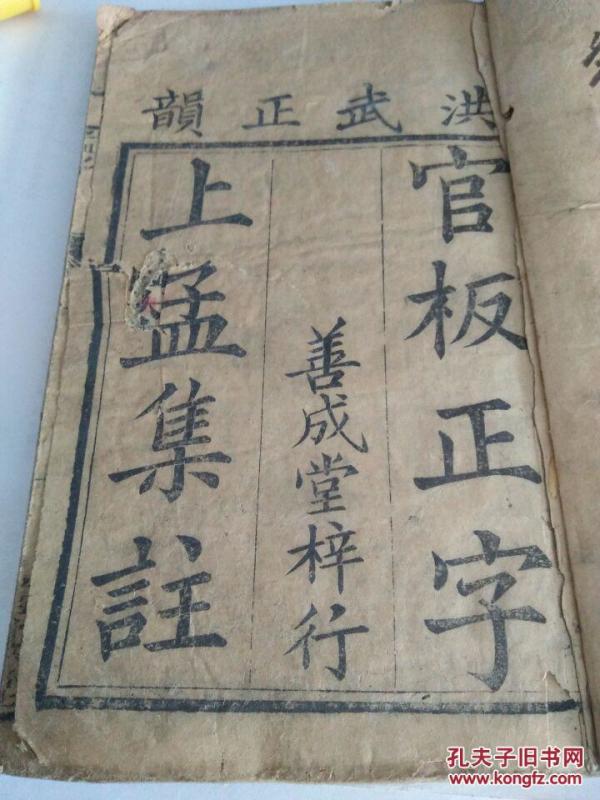 洪武正韻
官板正字
善成堂梓行
上孟集註
孔夫子旧书网
www.kongfz.com